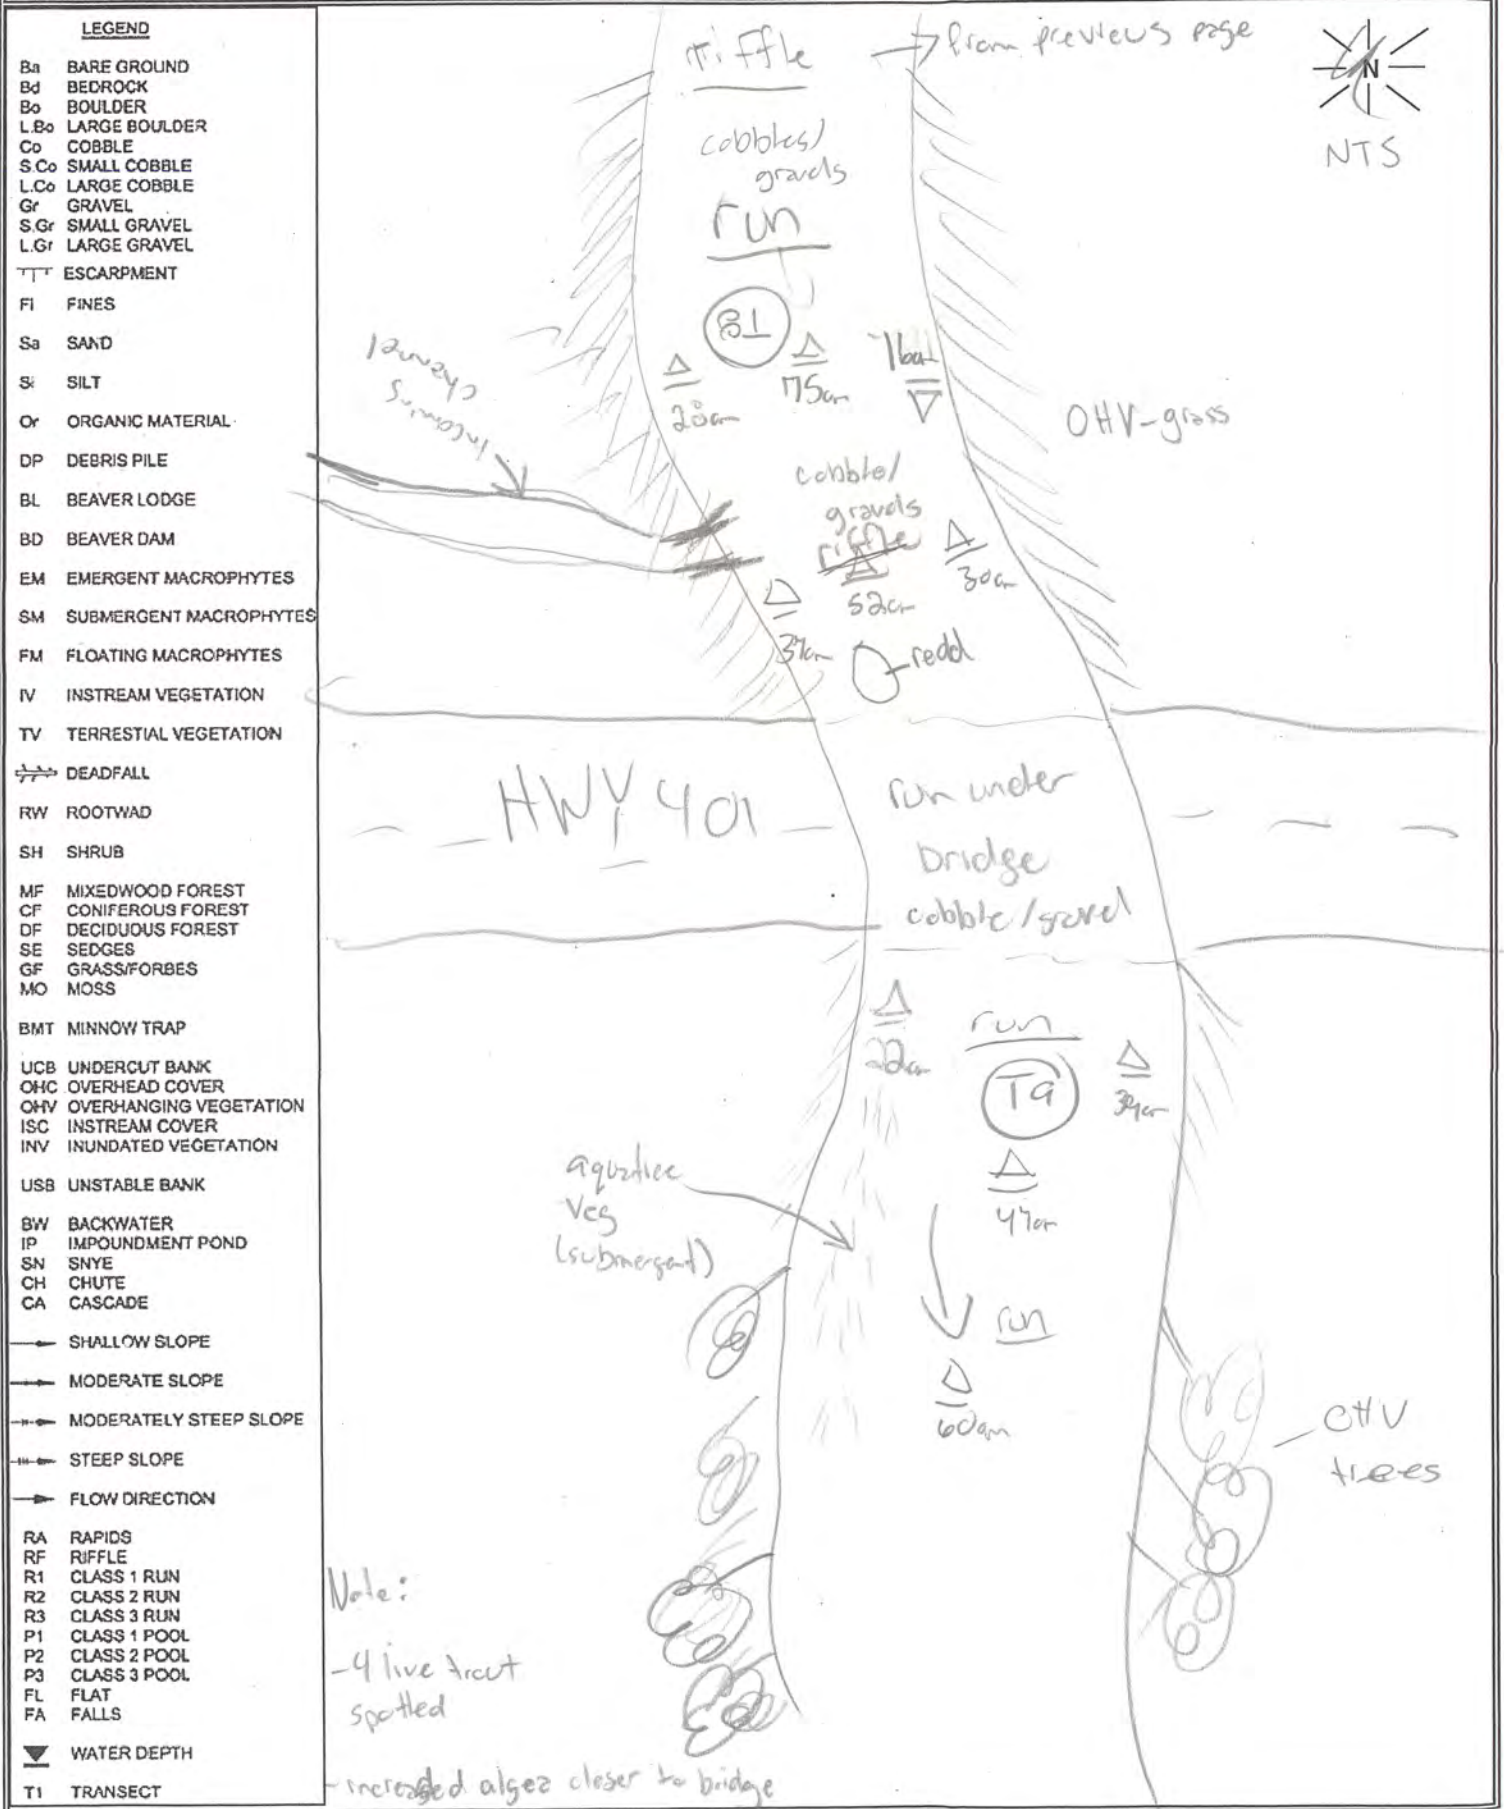 LEGEND
Ba BARE GROUND
Bd BEDROCK
Bo BOULDER
L.Bo LARGE BOULDER
Co COBBLE
S.Co SMALL COBBLE
L.Co LARGE COBBLE
Gr GRAVEL
S.Gr SMALL GRAVEL
L.Gr LARGE GRAVEL
ESCARPMENT
FI FINES
Sa SAND
Si SILT
Or ORGANIC MATERIAL
DP DEBRIS PILE
BL BEAVER LODGE
BD BEAVER DAM
EM EMERGENT MACROPHYTES
SM SUBMERGENT MACROPHYTES
FM FLOATING MACROPHYTES
IV INSTREAM VEGETATION
TV TERRESTIAL VEGETATION
DEADFALL
RW ROOTWAD
SH SHRUB
MF MIXEDWOOD FOREST
CF CONIFEROUS FOREST
DF DECIDUOUS FOREST
SE SEDGES
GF GRASS/FORBES
MO MOSS
BMT MINNOW TRAP
UCB UNDERCUT BANK
OHC OVERHEAD COVER
OHV OVERHANGING VEGETATION
ISC INSTREAM COVER
INV INUNDATED VEGETATION
USB UNSTABLE BANK
BW BACKWATER
IP IMPOUNDMENT POND
SN SNYE
CH CHUTE
CA CASCADE
SHALLOW SLOPE
MODERATE SLOPE
MODERATELY STEEP SLOPE
STEEP SLOPE
FLOW DIRECTION
RA RAPIDS
RF RIFFLE
R1 CLASS 1 RUN
R2 CLASS 2 RUN
R3 CLASS 3 RUN
P1 CLASS 1 POOL
P2 CLASS 2 POOL
P3 CLASS 3 POOL
FL FLAT
FA FALLS
WATER DEPTH
T1 TRANSECT
riffle
from previous page
N
NTS
cobbles/
gravels
run
T8
28cm
75cm
incoming
channel
OHV-grass
cobble/
gravels
riffle
30cm
52cm
redd
HWY 401
run under
bridge
cobble/gravel
22cm
run
T9
47cm
aquatic
veg
(submergent)
run
60cm
OHV
trees
Note:
-4 live trout
spotted
- increased algea closer to bridge